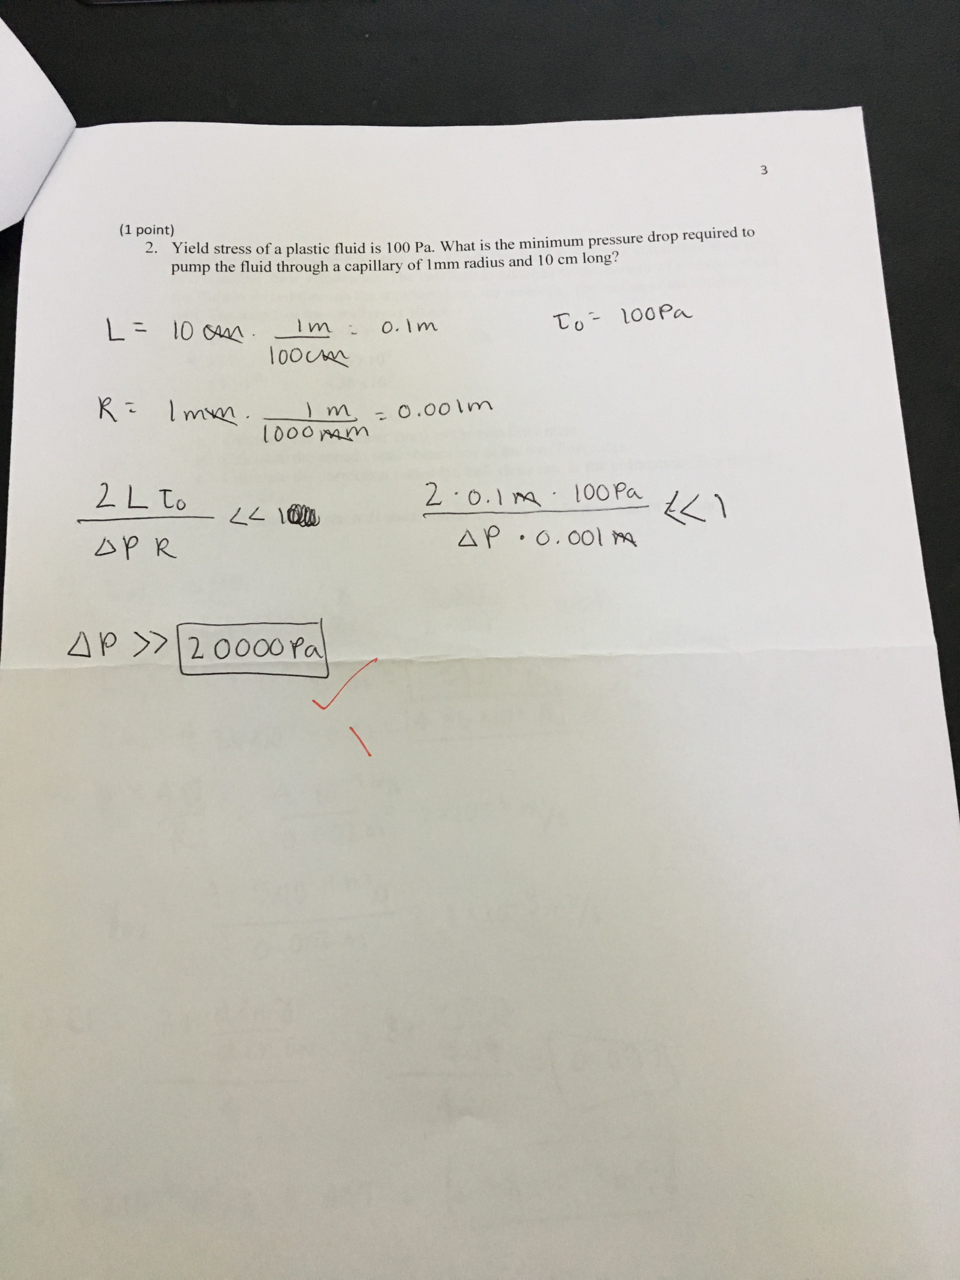 3
(1 point)
2. Yield stress of a plastic fluid is 100 Pa. What is the minimum pressure drop required to
pump the fluid through a capillary of 1mm radius and 10 cm long?
L = 10 cm · 1m / 100cm = 0.1m
τ₀ = 100Pa
R = 1mm · 1m / 1000mm = 0.001m
2 L τ₀ / ΔP R << 1
2 · 0.1m · 100Pa / ΔP · 0.001m << 1
ΔP >> 20000Pa